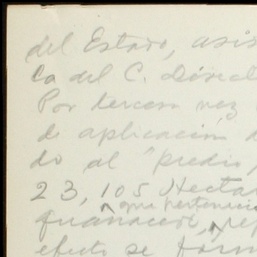 del Estado, asis
ca del C. Direct
Por tercera vez
de aplicación d
do al "predio
23,105 Hectar
que pertenecio
Guanacevi, rep
efecto se form